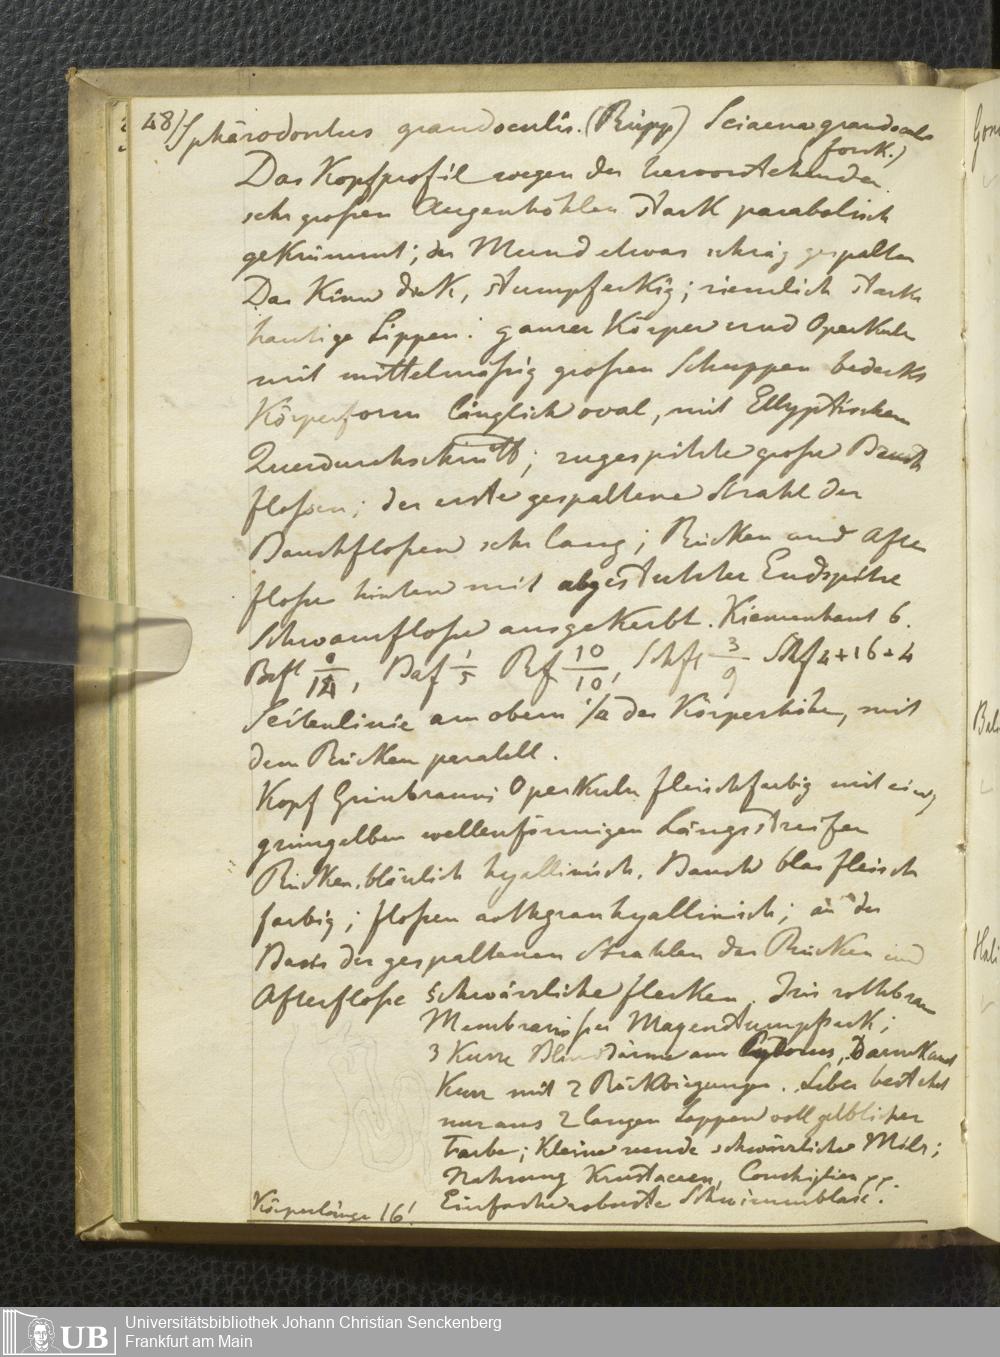 48) Sphärodontus grandoculis. (Rüpp) Sciaena grandoculis
forsk.)
Das Kopfprofil wegen der hervorstehenden
sehr großen Augenhöhlen stark parabolisch
gekrümmt; der Mund etwas schräg gespalten
Das Kinn dick, stumpfeckig; ziemlich starke
hautige Lippen: ganzer Körper und Operkuln
mit mittelmäßig großen Schuppen bedeckt
Körperform länglich oval, mit Ellyptischen
Querdurchschnitt; zugespitzte große Brust
floßen; der erste gespaltene Strahl der
Bauchfloßen sehr lang; Rücken und After
floße hinten mit abgestutzter Endspitze
Schwanzfloße ausgekerbt. Kiemenhaut 6.
Bafl 1/5 Rf 10/10, 3/9 4+16+4
Seitenlinie am obern 1/2 der Körperhöhe, mit
dem Rücken paralell.
Kopf Grünbraun; Operkuln fleischfarbig mit einig
grüngelben wellenförmigen Längsstreifen
Rücken bläulich hyallinisch. Bauch blas fleisch
farbig; floßen rothgrau hyallinisch; an der
Basis der gespaltenen Strahlen der Rücken und
Afterfloße schwärzliche flecken. Iris rothbraun
Membranioser Magen stumpfsack;
3 Kurze Blinddärme am Pylorus, Darmkanal
Kurz mit 2 Rückbiegungen. Leber bestehet
nur aus 2 langen Lappen voll gelblicher
Farbe; Kleine runde schwärzliche Milz;
Nahrung Krustaceen, Conchilien pp.
Einfache robuste Schwimmblase.
Körperlänge 16!
Gom
Bali
Hali
Universitätsbibliothek Johann Christian Senckenberg
Frankfurt am Main
UB